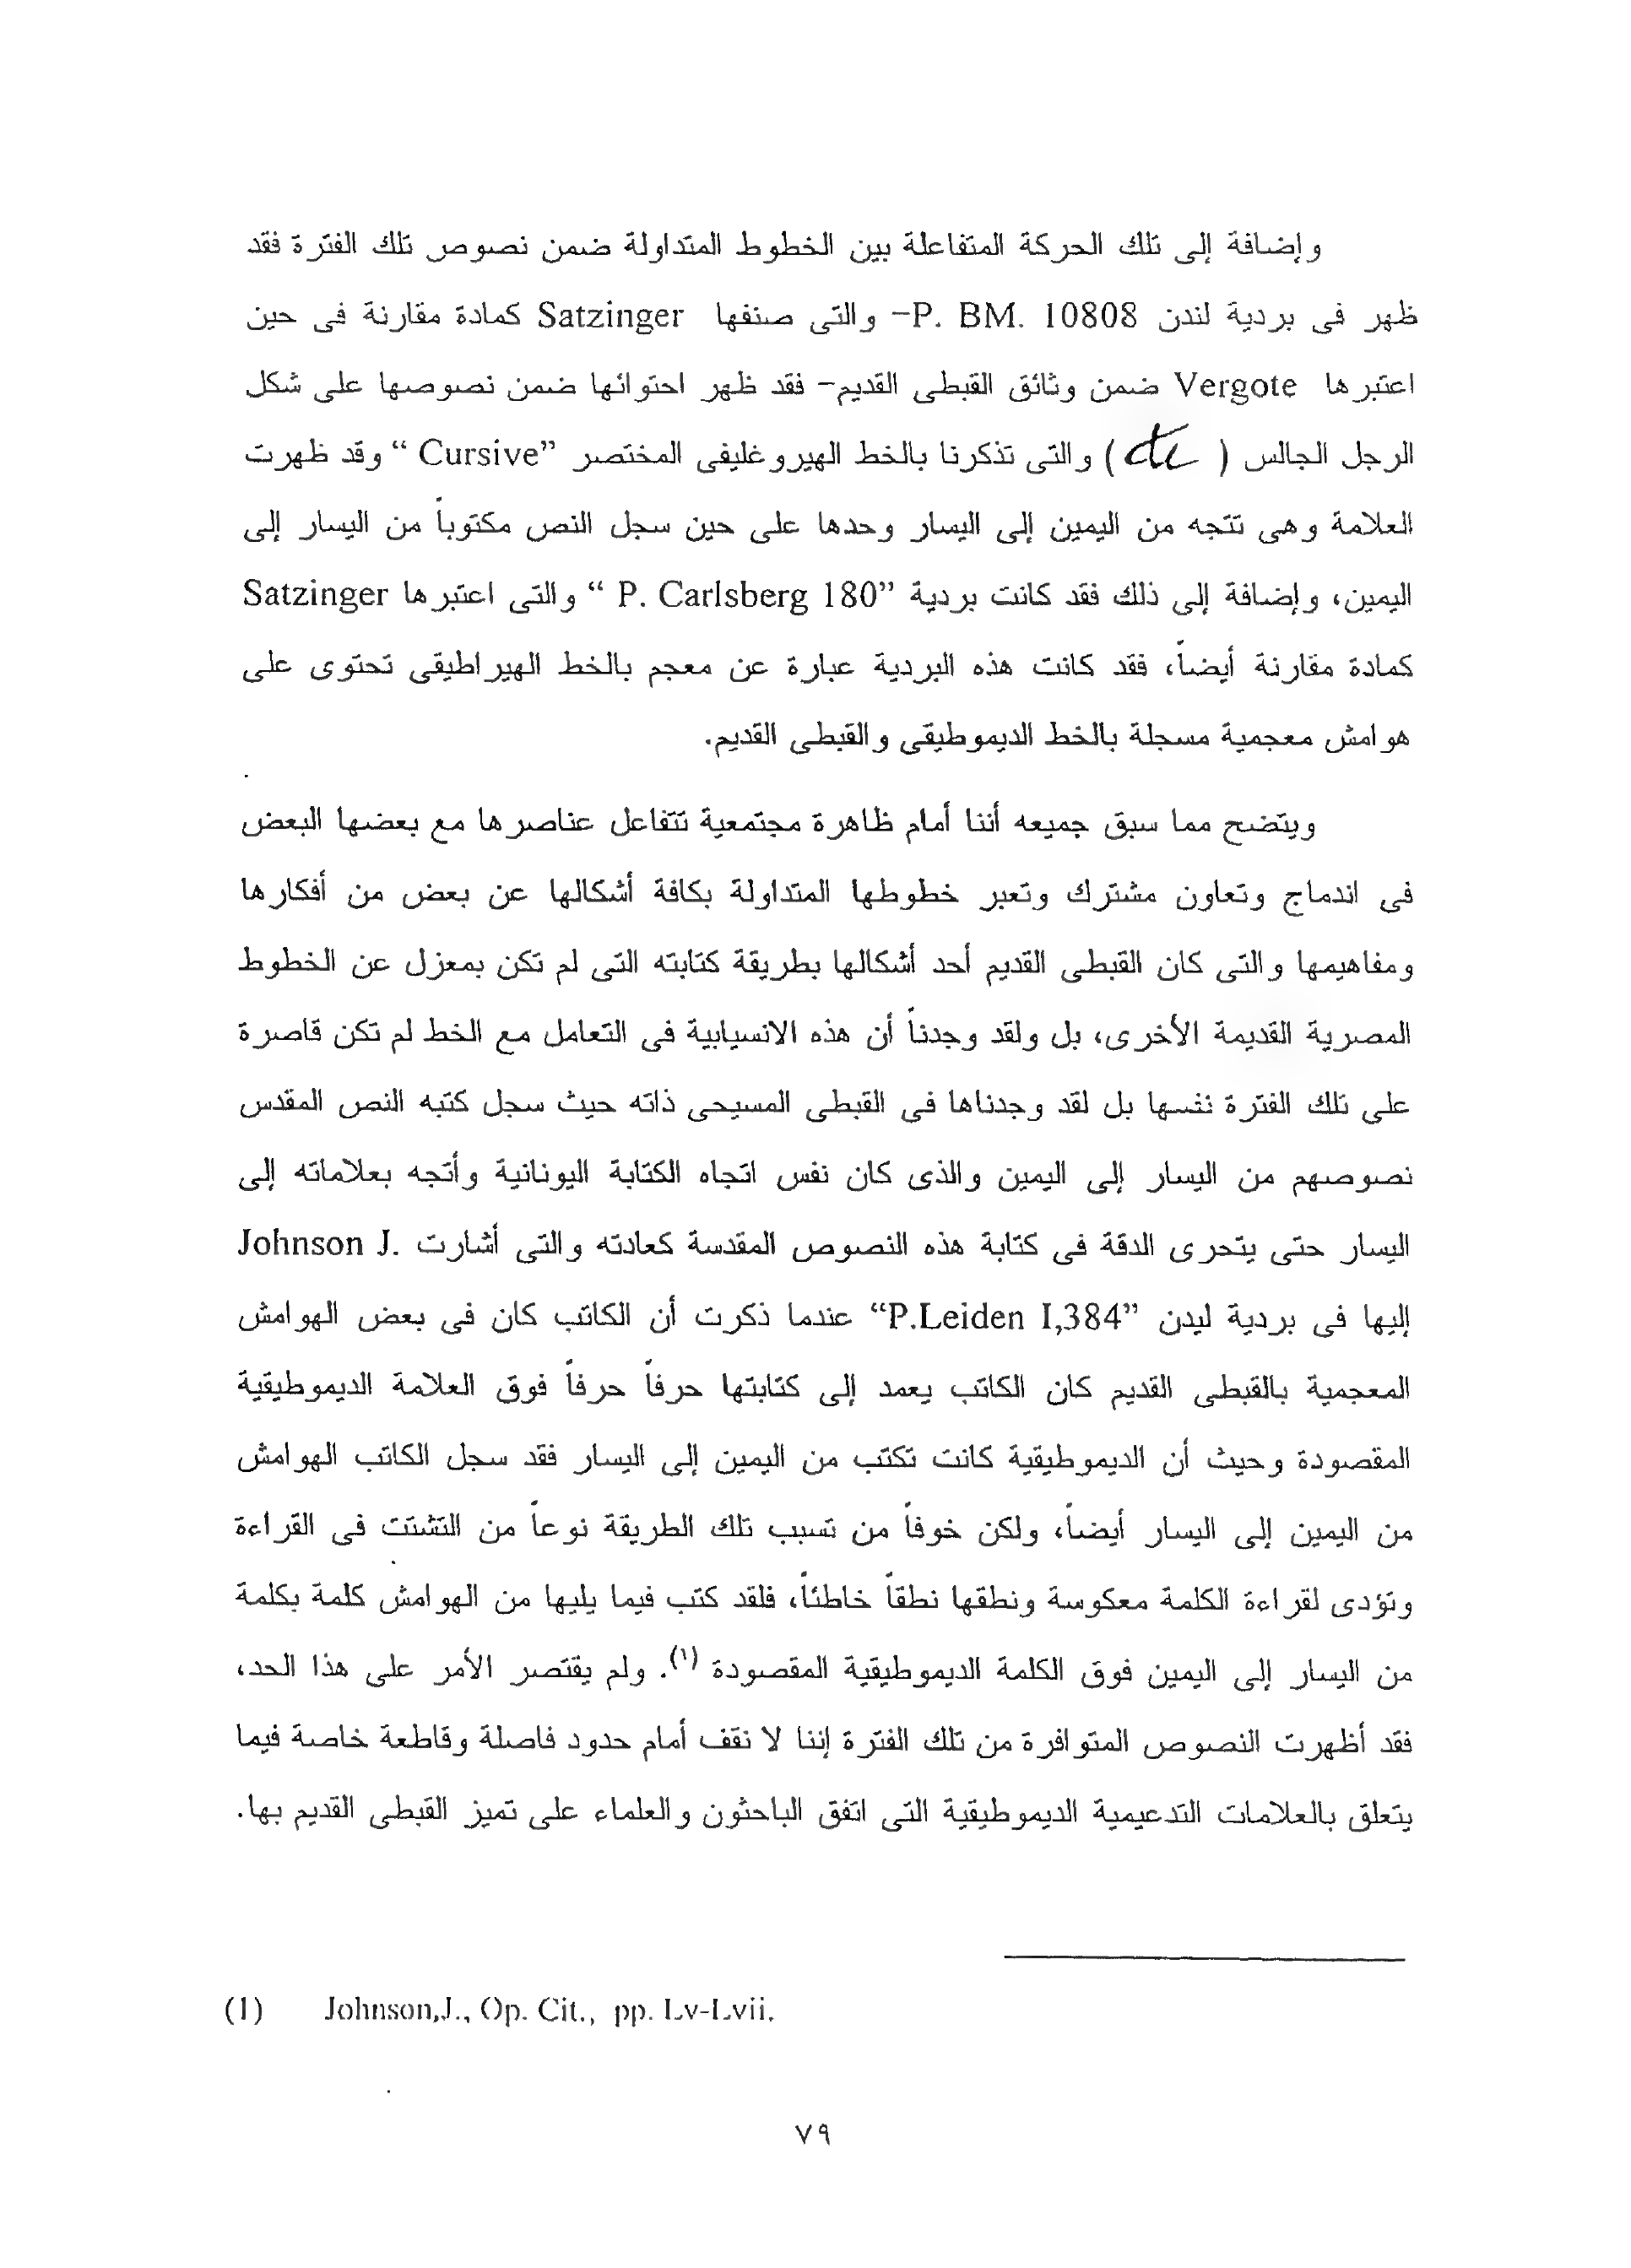 وإضافة إلى تلك الحركة المتفاعلة بين الخطوط المتداولة ضمن نصوص تلك الفترة فقد
ظهر فى بردية لندن P. BM. 10808- والتى صنفها Satzinger كمادة مقارنة فى حين
اعتبرها Vergote ضمن وثائق القبطى القديم- فقد ظهر احتوائها ضمن نصوصها على شكل
الرجل الجالس ( ) والتى تذكرنا بالخط الهيروغليفى المختصر "Cursive “ وقد ظهرت
العلامة وهى تتجه من اليمين إلى اليسار وحدها على حين سجل النص مكتوباً من اليسار إلى
اليمين، وإضافة إلى ذلك فقد كانت بردية "P. Carlsberg 180 “ والتى اعتبرها Satzinger
كمادة مقارنة أيضاً، فقد كانت هذه البردية عبارة عن معجم بالخط الهيراطيقى تحتوى على
هوامش معجمية مسجلة بالخط الديموطيقى والقبطى القديم.
ويتضح مما سبق جميعه أننا أمام ظاهرة مجتمعية تتفاعل عناصرها مع بعضها البعض
فى اندماج وتعاون مشترك وتعبر خطوطها المتداولة بكافة أشكالها عن بعض من أفكارها
ومفاهيمها والتى كان القبطى القديم أحد أشكالها بطريقة كتابته التى لم تكن بمعزل عن الخطوط
المصرية القديمة الأخرى، بل ولقد وجدناً أن هذه الانسيابية فى التعامل مع الخط لم تكن قاصرة
على تلك الفترة نفسها بل لقد وجدناها فى القبطى المسيحى ذاته حيث سجل كتبه النص المقدس
نصوصهم من اليسار إلى اليمين والذى كان نفس اتجاه الكتابة اليونانية وأتجه بعلاماته إلى
اليسار حتى يتحرى الدقة فى كتابة هذه النصوص المقدسة كعادته والتى أشارت Johnson J.
إليها فى بردية ليدن “P.Leiden I,384” عندما ذكرت أن الكاتب كان فى بعض الهوامش
المعجمية بالقبطى القديم كان الكاتب يعمد إلى كتابتها حرفاً حرفاً فوق العلامة الديموطيقية
المقصودة وحيث أن الديموطيقية كانت تكتب من اليمين إلى اليسار فقد سجل الكاتب الهوامش
من اليمين إلى اليسار أيضاً، ولكن خوفاً من تسبب تلك الطريقة نوعاً من التشتت فى القراءة
وتؤدى لقراءة الكلمة معكوسة ونطقها نطقاً خاطئاً، فلقد كتب فيما يليها من الهوامش كلمة بكلمة
من اليسار إلى اليمين فوق الكلمة الديموطيقية المقصودة (١). ولم يقتصر الأمر على هذا الحد،
فقد أظهرت النصوص المتوافرة من تلك الفترة إننا لا نقف أمام حدود فاصلة وقاطعة خاصة فيما
يتعلق بالعلامات التدعيمية الديموطيقية التى اتفق الباحثون والعلماء على تميز القبطى القديم بها.
(1) Johnson,J., Op. Cit., pp. Lv-Lvii.
٧٩